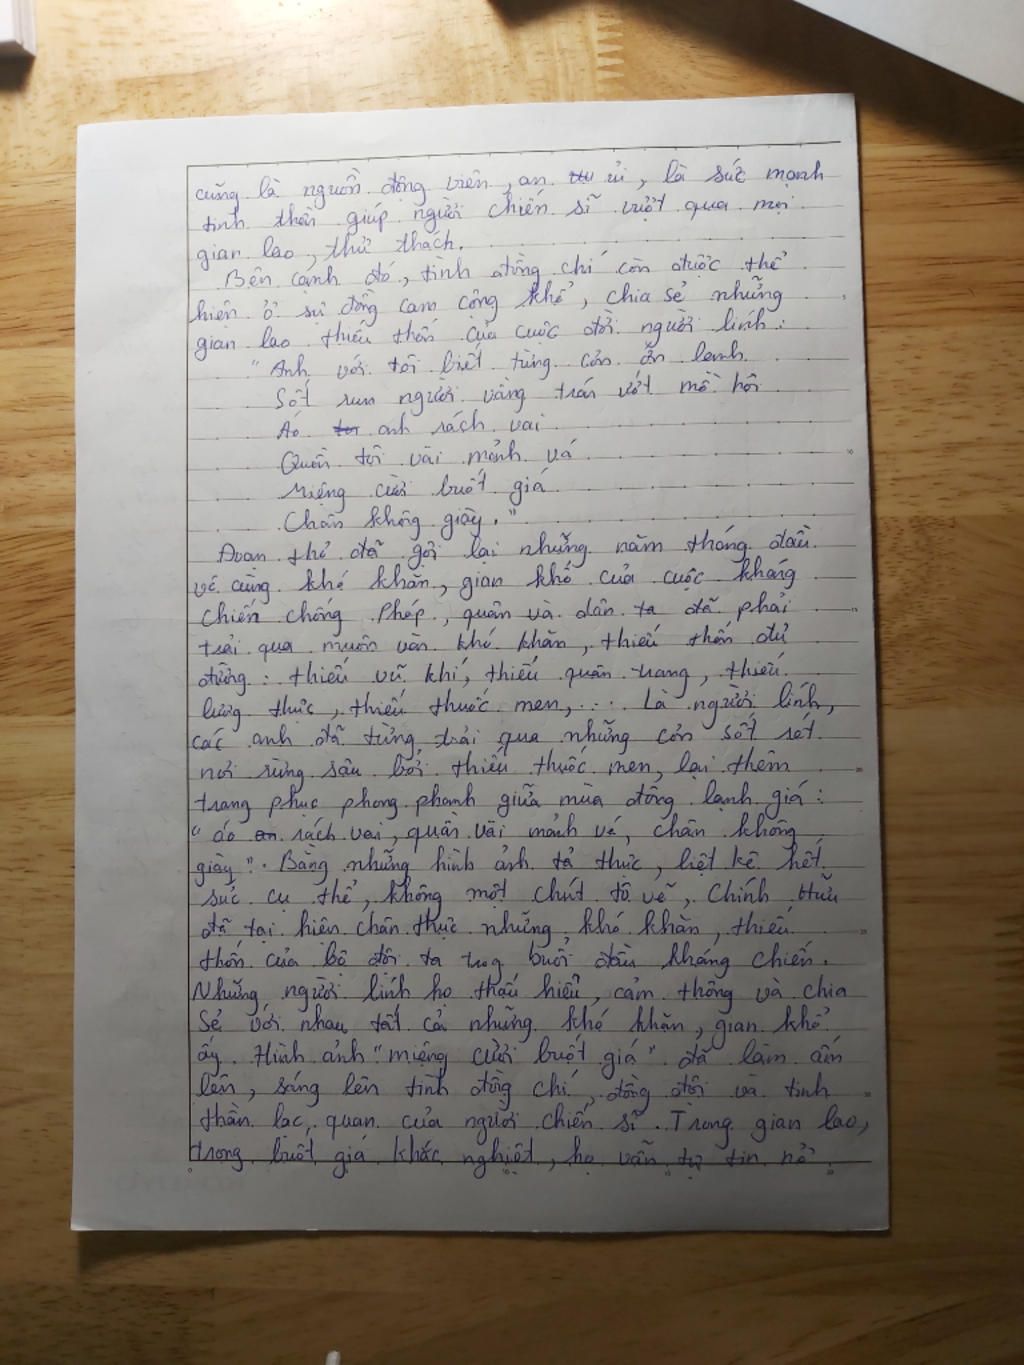 cũng là nguồn động viên, an ủi, là sức mạnh
tinh thần giúp người chiến sĩ vượt qua mọi
gian lao, thử thách.
Bên cạnh đó, tình đồng chí còn được thể
hiện ở sự đồng cam cộng khổ, chia sẻ những
gian lao thiếu thốn của cuộc đời người lính:
"Anh với tôi biết từng cơn ớn lạnh
Sốt run người vầng trán ướt mồ hôi
Áo anh rách vai
Quần tôi vài mảnh vá
Miệng cười buốt giá
Chân không giày."
Đoạn thơ đã gợi lại những năm tháng đầu
vô cùng khó khăn, gian khổ của cuộc kháng
chiến chống Pháp, quân và dân ta đã phải
trải qua muôn vàn khó khăn, thiếu thốn đủ
đường: thiếu vũ khí, thiếu quân trang, thiếu
lương thực, thiếu thuốc men,.... Là người lính,
các anh đã từng trải qua những cơn sốt rét
nơi rừng sâu bởi thiếu thuốc men, lại thêm
trang phục phong phanh giữa mùa đông lạnh giá:
"áo rách vai, quần vài mảnh vá, chân không
giày". Bằng những hình ảnh tả thực, liệt kê hết
sức cụ thể, không một chút tô vẽ, Chính Hữu
đã tại hiện chân thực những khó khăn, thiếu
thốn của bộ đội ta trog buổi đầu kháng chiến.
Những người lính họ thấu hiểu, cảm thông và chia
sẻ với nhau tất cả những khó khăn, gian khổ
ấy. Hình ảnh "miệng cười buốt giá" đã làm ấm
lên, sáng lên tình đồng chí, đồng đội và tinh
thần lạc quan của người chiến sĩ. Trong gian lao,
trong buốt giá khắc nghiệt, họ vẫn tự tin nở